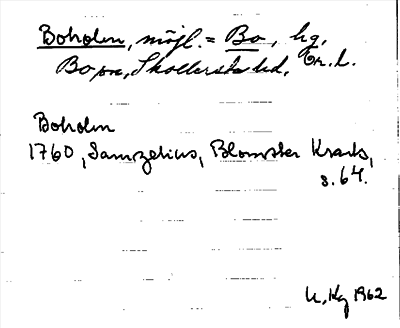 Boholm, möjl. = Bo, hg,
Bo sn, Skollersta hd, Ör. l.
Boholm
1760, Samzelius, Blomster Krants,
s. 64.
U, Kg 1962